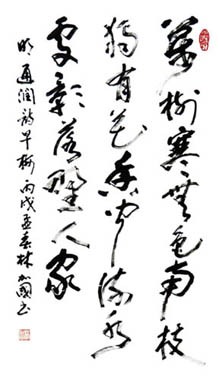 萬樹寒無色南枝
獨有花香聞流水
處影落野人家
明通潤詩早梅丙戌孟春林國书